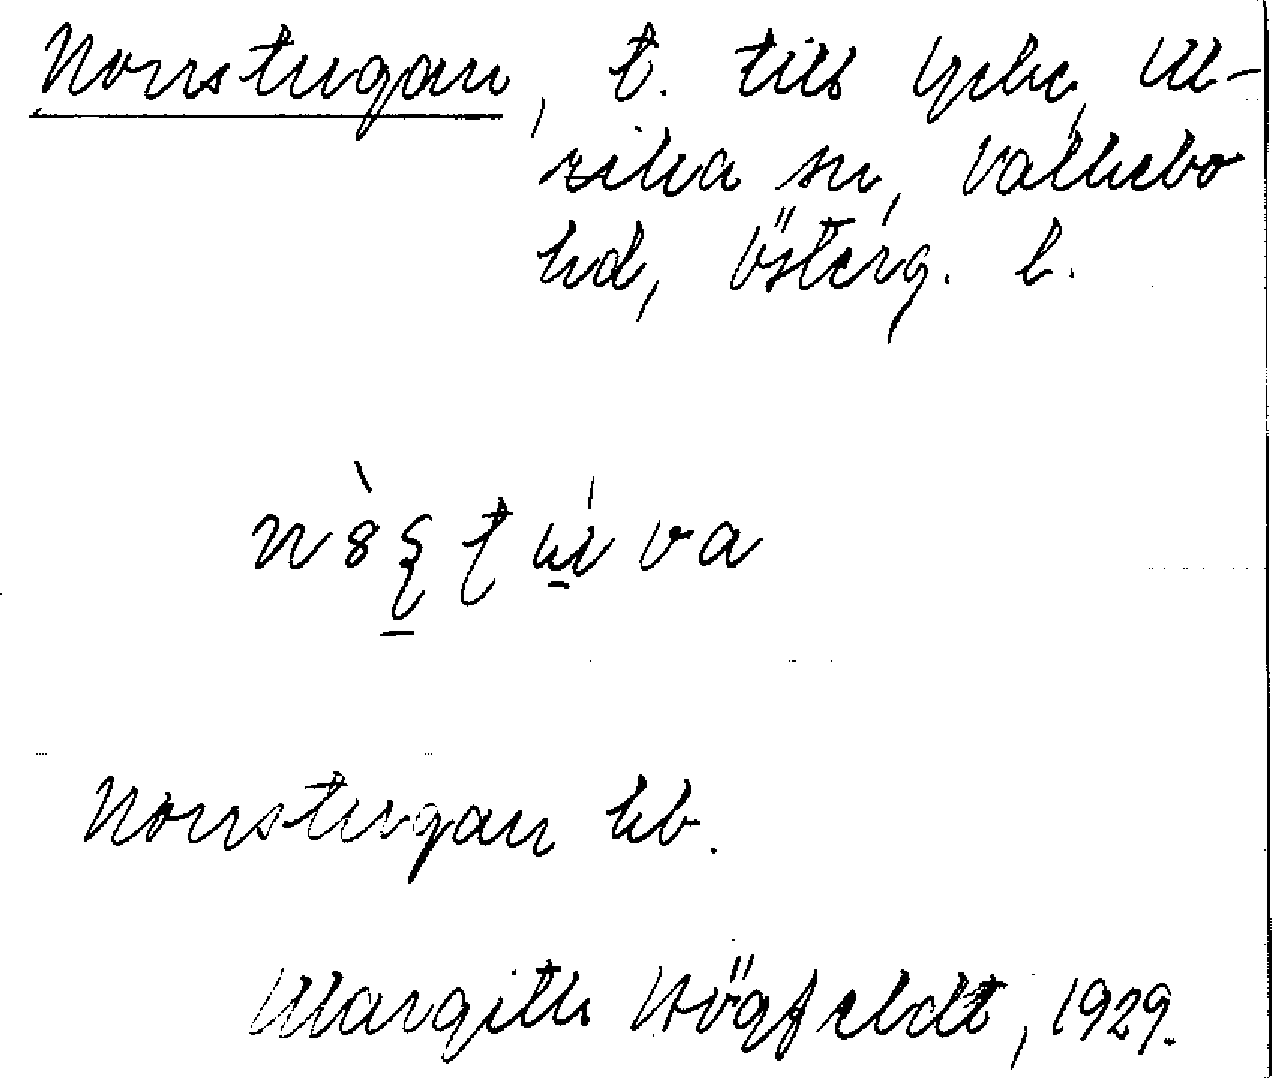 Norrstugan, t. till Lycke, Ul-
rika sn, Valkebo
hd, Österg. l.
Norrstugan kb.
Margith Högfeldt, 1929.